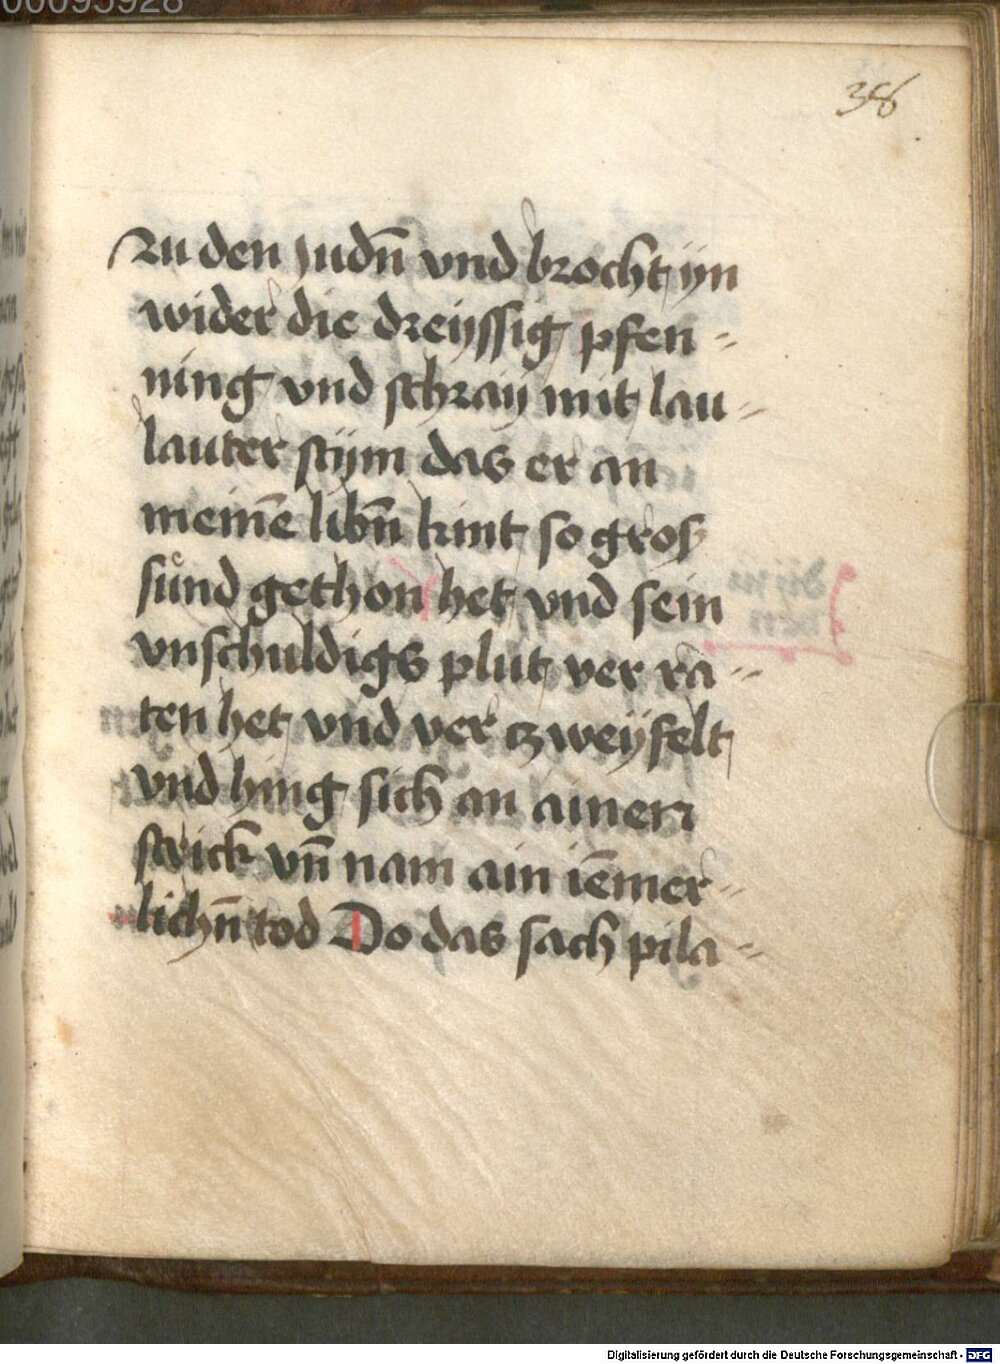 00095928
38
zu den Judn̄ vnd brocht yn
wider die dreyssig pfen =
ning vnd schray mit lau =
lauter stym das er an
meinē libn̄ kint so gros
sund gethon het vnd sein
vnschuldigs plut ver ra =
ten het vnd ver zweyfelt
vnd hing sich an ainen
strick vn̄ nam ain iēmer =
lichn̄ tod Do das sach pila =
Digitalisierung gefördert durch die Deutsche Forschungsgemeinschaft - DFG